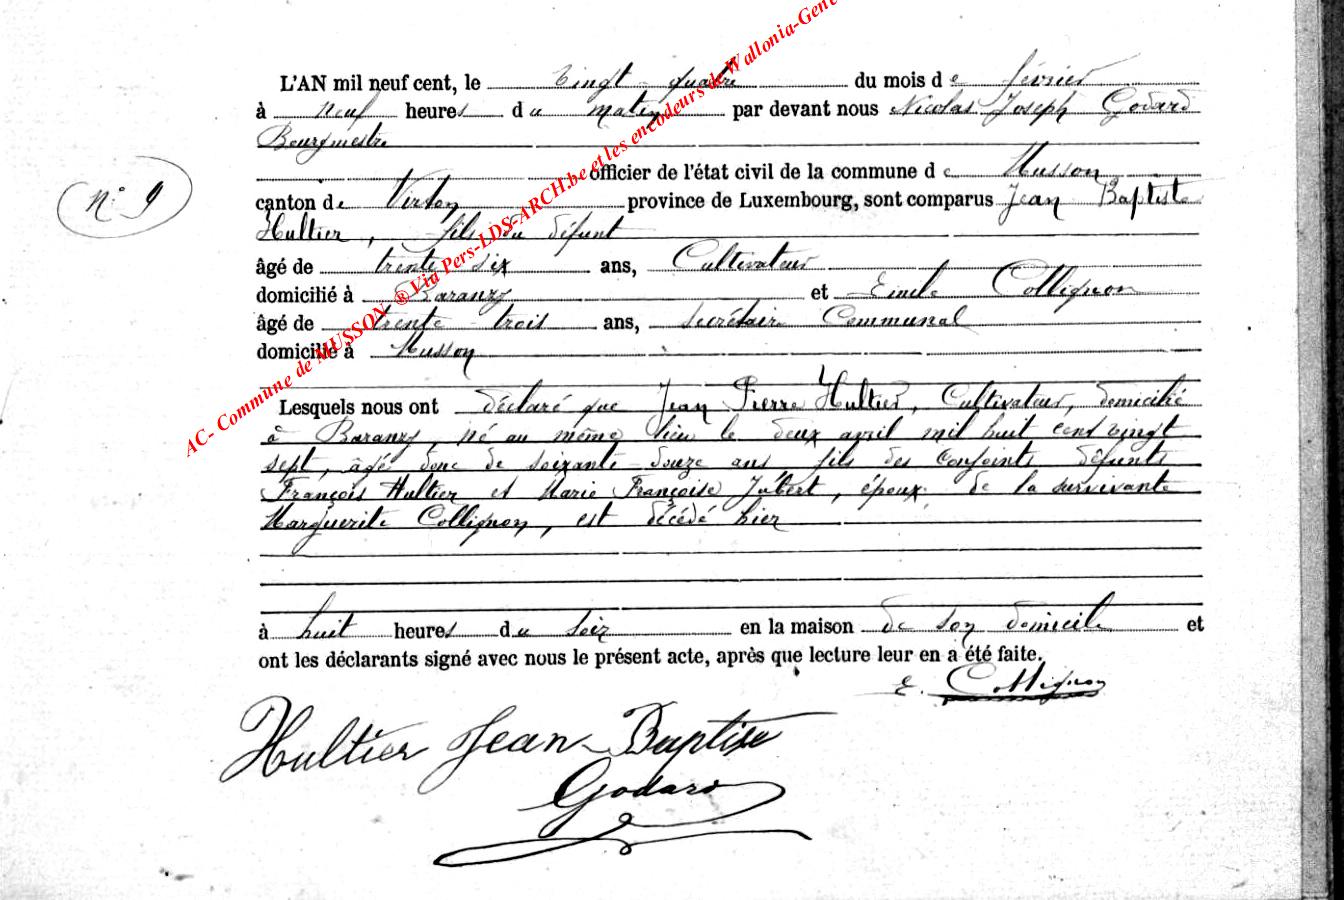 L'AN mil neuf cent, le vingt-quatre du mois de février
à neuf heures du matin par devant nous Nicolas Joseph Godard
Bourgmestre
officier de l'état civil de la commune de Musson
N° 9
canton de Virton province de Luxembourg, sont comparus Jean Baptiste
Hultier, fils du défunt
âgé de trente six ans, Cultivateur
domicilié à Baranzy et Emile Collignon
âgé de trente-trois ans, secrétaire Communal
domicilié à Musson
AC- Commune de MUSSON ® Via Pers-LDS-ARCH.be et les encodeurs de Wallonia-Gene
Lesquels nous ont déclaré que Jean Pierre Hultier, Cultivateur, domicilié
à Baranzy, né au même lieu le deux avril mil huit cent vingt
sept, âgé donc de soixante-douze ans fils des conjoints défunts
François Hultier et Marie Françoise Jubert, époux de la survivante
Marguerite Collignon, est décédé hier
à huit heures du soir en la maison de son domicile et
ont les déclarants signé avec nous le présent acte, après que lecture leur en a été faite.
E. Collignon
Hultier Jean-Baptise
Godard